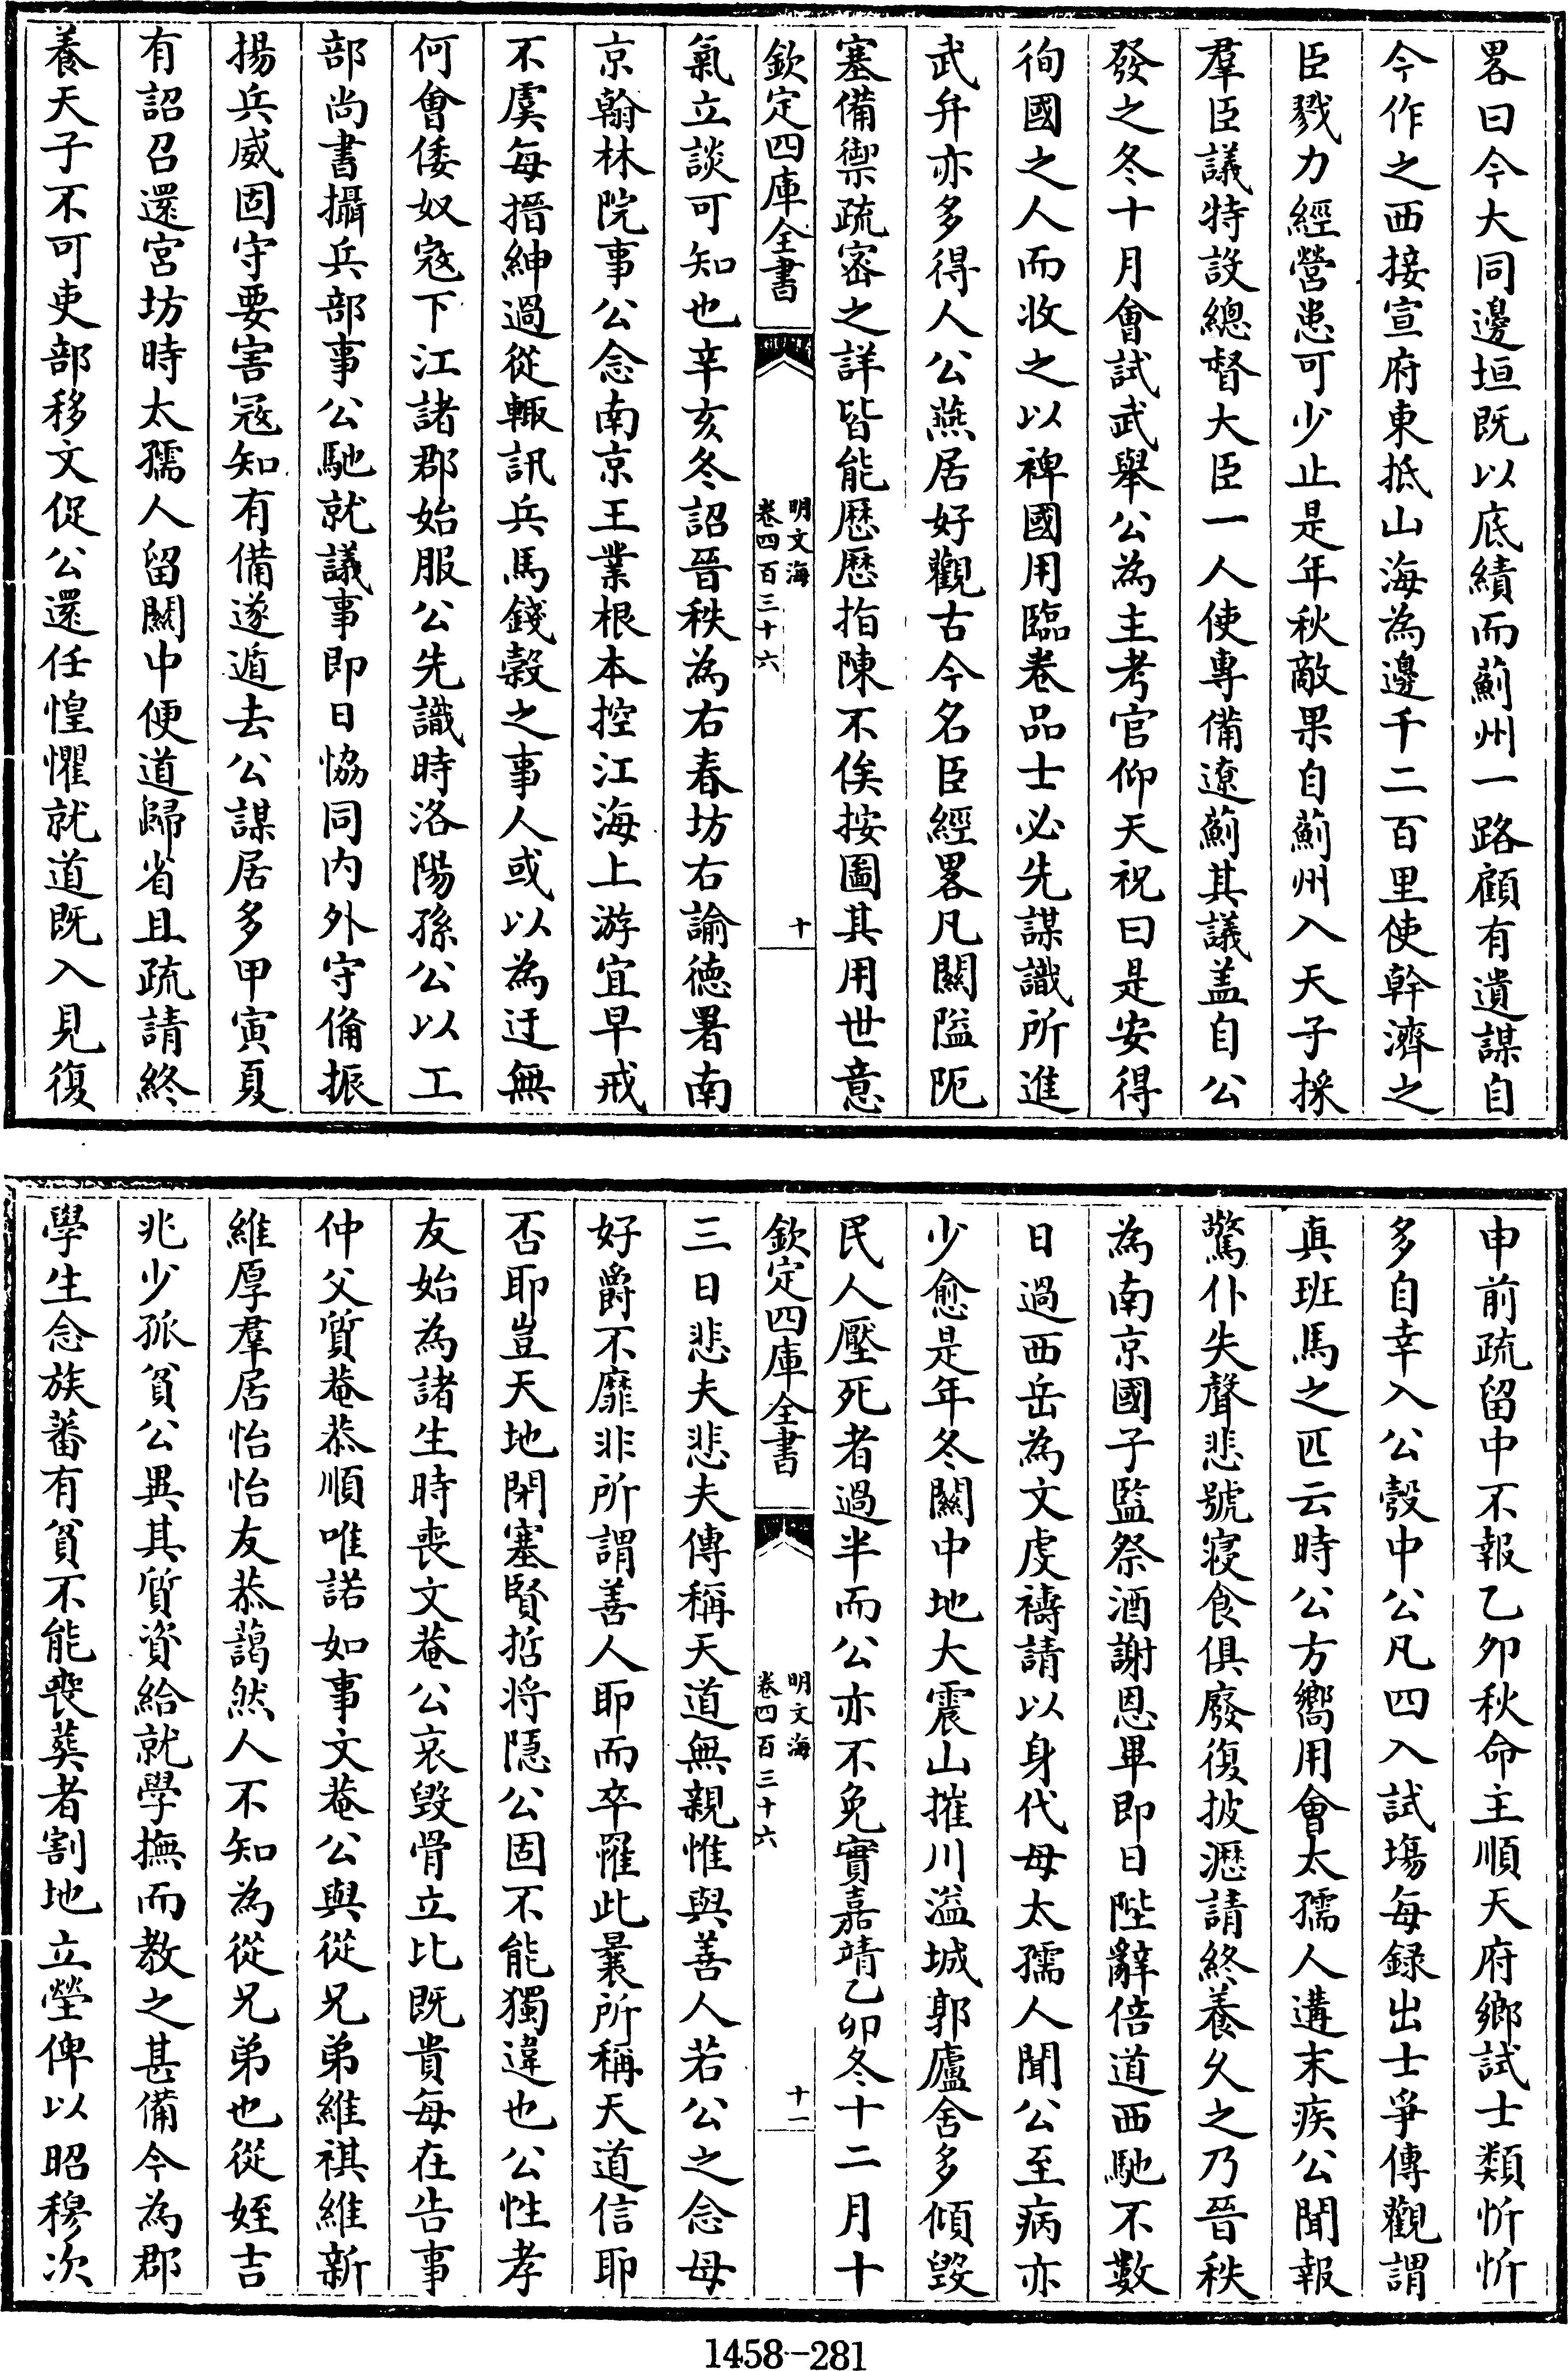 畧曰今大同邊垣既以底績而薊州一路顧有遺謀自
今作之西接宣府東抵山海為邊千二百里使幹濟之
臣戮力經營患可少止是年秋敵果自薊州入天子採
羣臣議特設總督大臣一人使專備遼薊其議盖自公
發之冬十月會試武舉公為主考官仰天祝曰是安得
徇國之人而收之以裨國用臨卷品士必先謀識所進
武弁亦多得人公燕居好觀古今名臣經畧凡關隘阨
塞備禦疏密之詳皆能歷歷指陳不俟按圖其用世意
欽定四庫全書
明文海
卷四百三十六
十
氣立談可知也辛亥冬詔晉秩為右春坊右諭徳署南
京翰林院事公念南京王業根本控江海上游宜早戒
不虞每搢紳過從輙訊兵馬錢榖之事人或以為迂無
何會倭奴宼下江諸郡始服公先識時洛陽孫公以工
部尚書攝兵部事公馳就議事即日恊同内外守備振
揚兵威固守要害宼知有備遂遁去公謀居多甲寅夏
有詔召還宮坊時太孺人留關中便道歸省且疏請終
養天子不可吏部移文促公還任惶懼就道既入見復
申前疏留中不報乙夘秋命主順天府鄉試士類忻忻
多自幸入公彀中公凡四入試塲每録出士爭傳觀謂
真班馬之匹云時公方嚮用會太孺人遘末疾公聞報
驚仆失聲悲號寢食俱廢復披瀝請終養久之乃晉秩
為南京國子監祭酒謝恩畢即日陛辭倍道西馳不數
日過西岳為文虔禱請以身代母太孺人聞公至病亦
少愈是年冬關中地大震山摧川溢城郭廬舍多傾毀
民人壓死者過半而公亦不免實嘉靖乙夘冬十二月十
欽定四庫全書
明文海
卷四百三十六
十一
三日悲夫悲夫傳稱天道無親惟與善人若公之念母
好爵不靡非所謂善人耶而卒罹此曩所稱天道信耶
否耶豈天地閉塞賢哲將隱公固不能獨違也公性孝
友始為諸生時喪文菴公哀毀骨立比既貴每在告事
仲父質菴恭順唯諾如事文菴公與從兄弟維祺維新
維厚羣居怡怡友恭藹然人不知為從兄弟也從姪吉
兆少孤貧公異其質資給就學撫而教之甚備今為郡
學生念族蕃有貧不能喪葬者割地立塋俾以昭穆次
1458-281